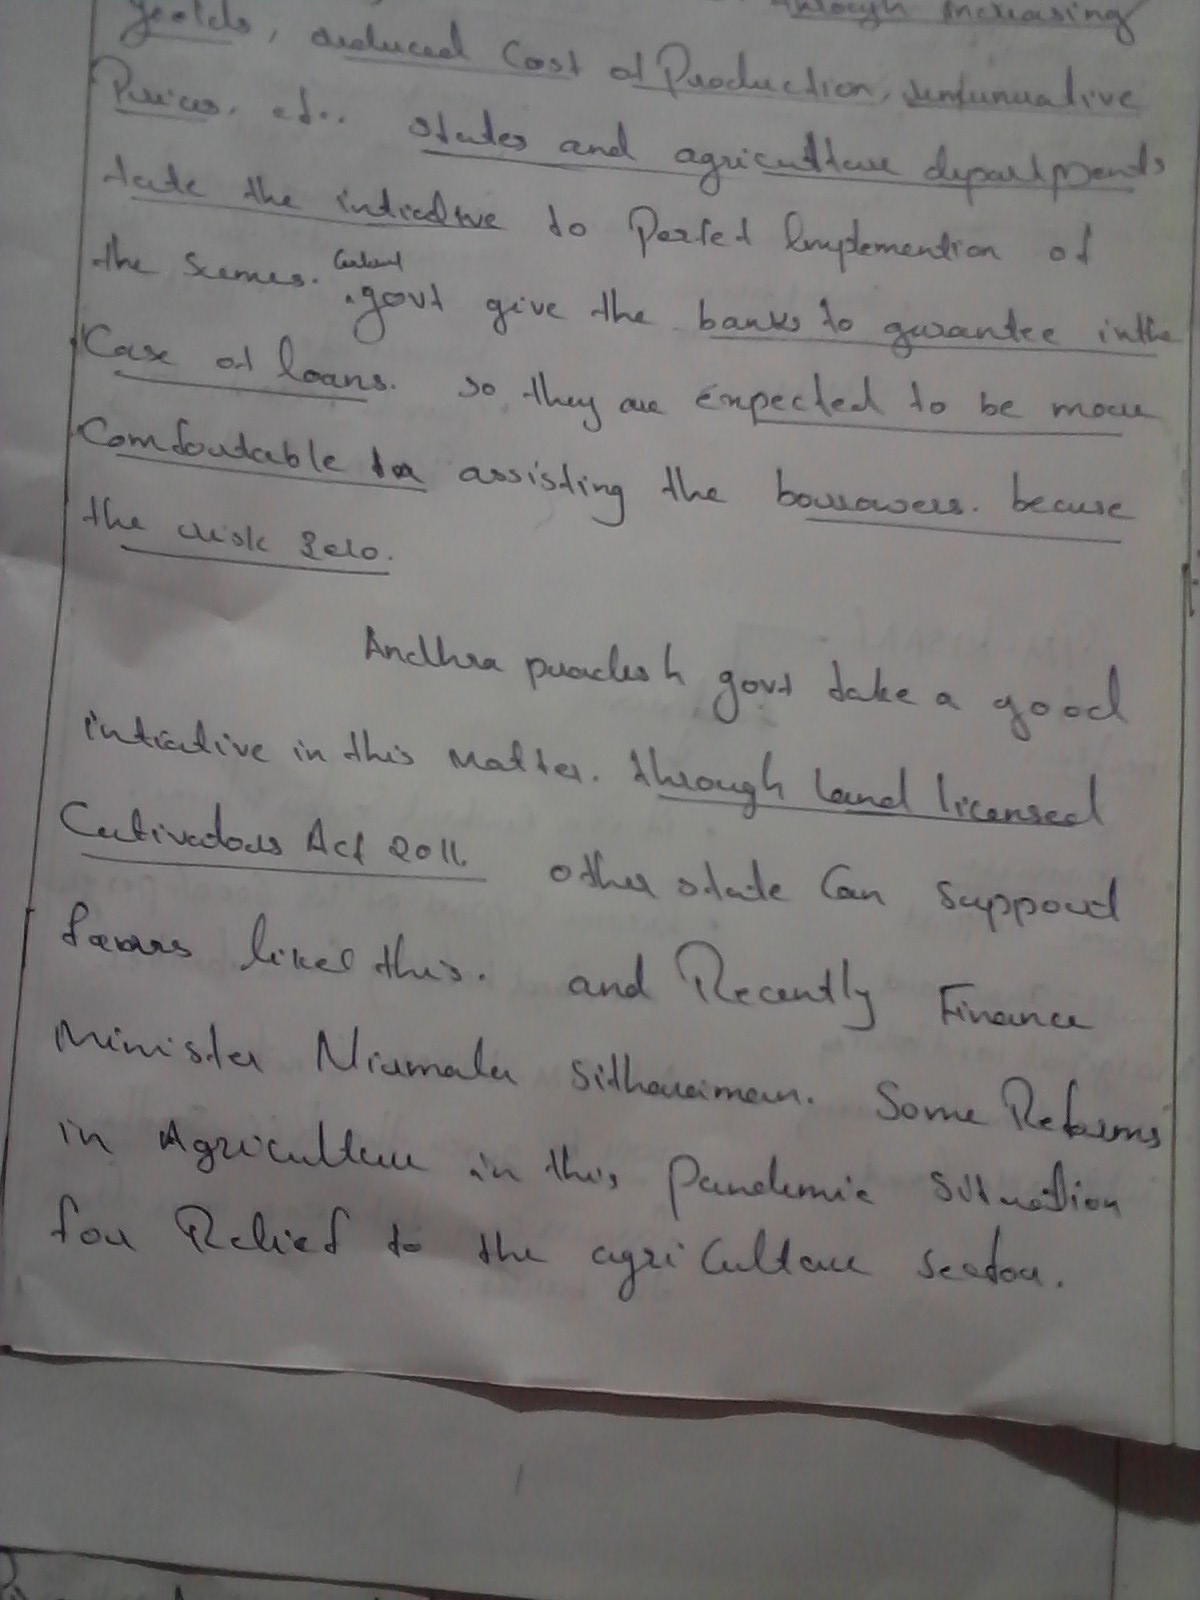 through increasing
yeolds, reduced Cost of Production,
Prices, et.. states and agriculture departments
take the intiative to Perfect Implemention of
the scemes. Central
govt give the banks to gurantee inthe
Case of loans. so they are expected to be more
Comfortable for assisting the borrowers. becuse
the risk zero.
Andhra pradesh govt take a good
intiative in this matter. through land licensed
Cultivadors Act 2011. other state Can support
farmrs like this. and Recently Finance
Minister Nirmala Sitharaiman. Some Reforms
in Agriculture in this pandemic situation
for Relief to the agriculture sector.